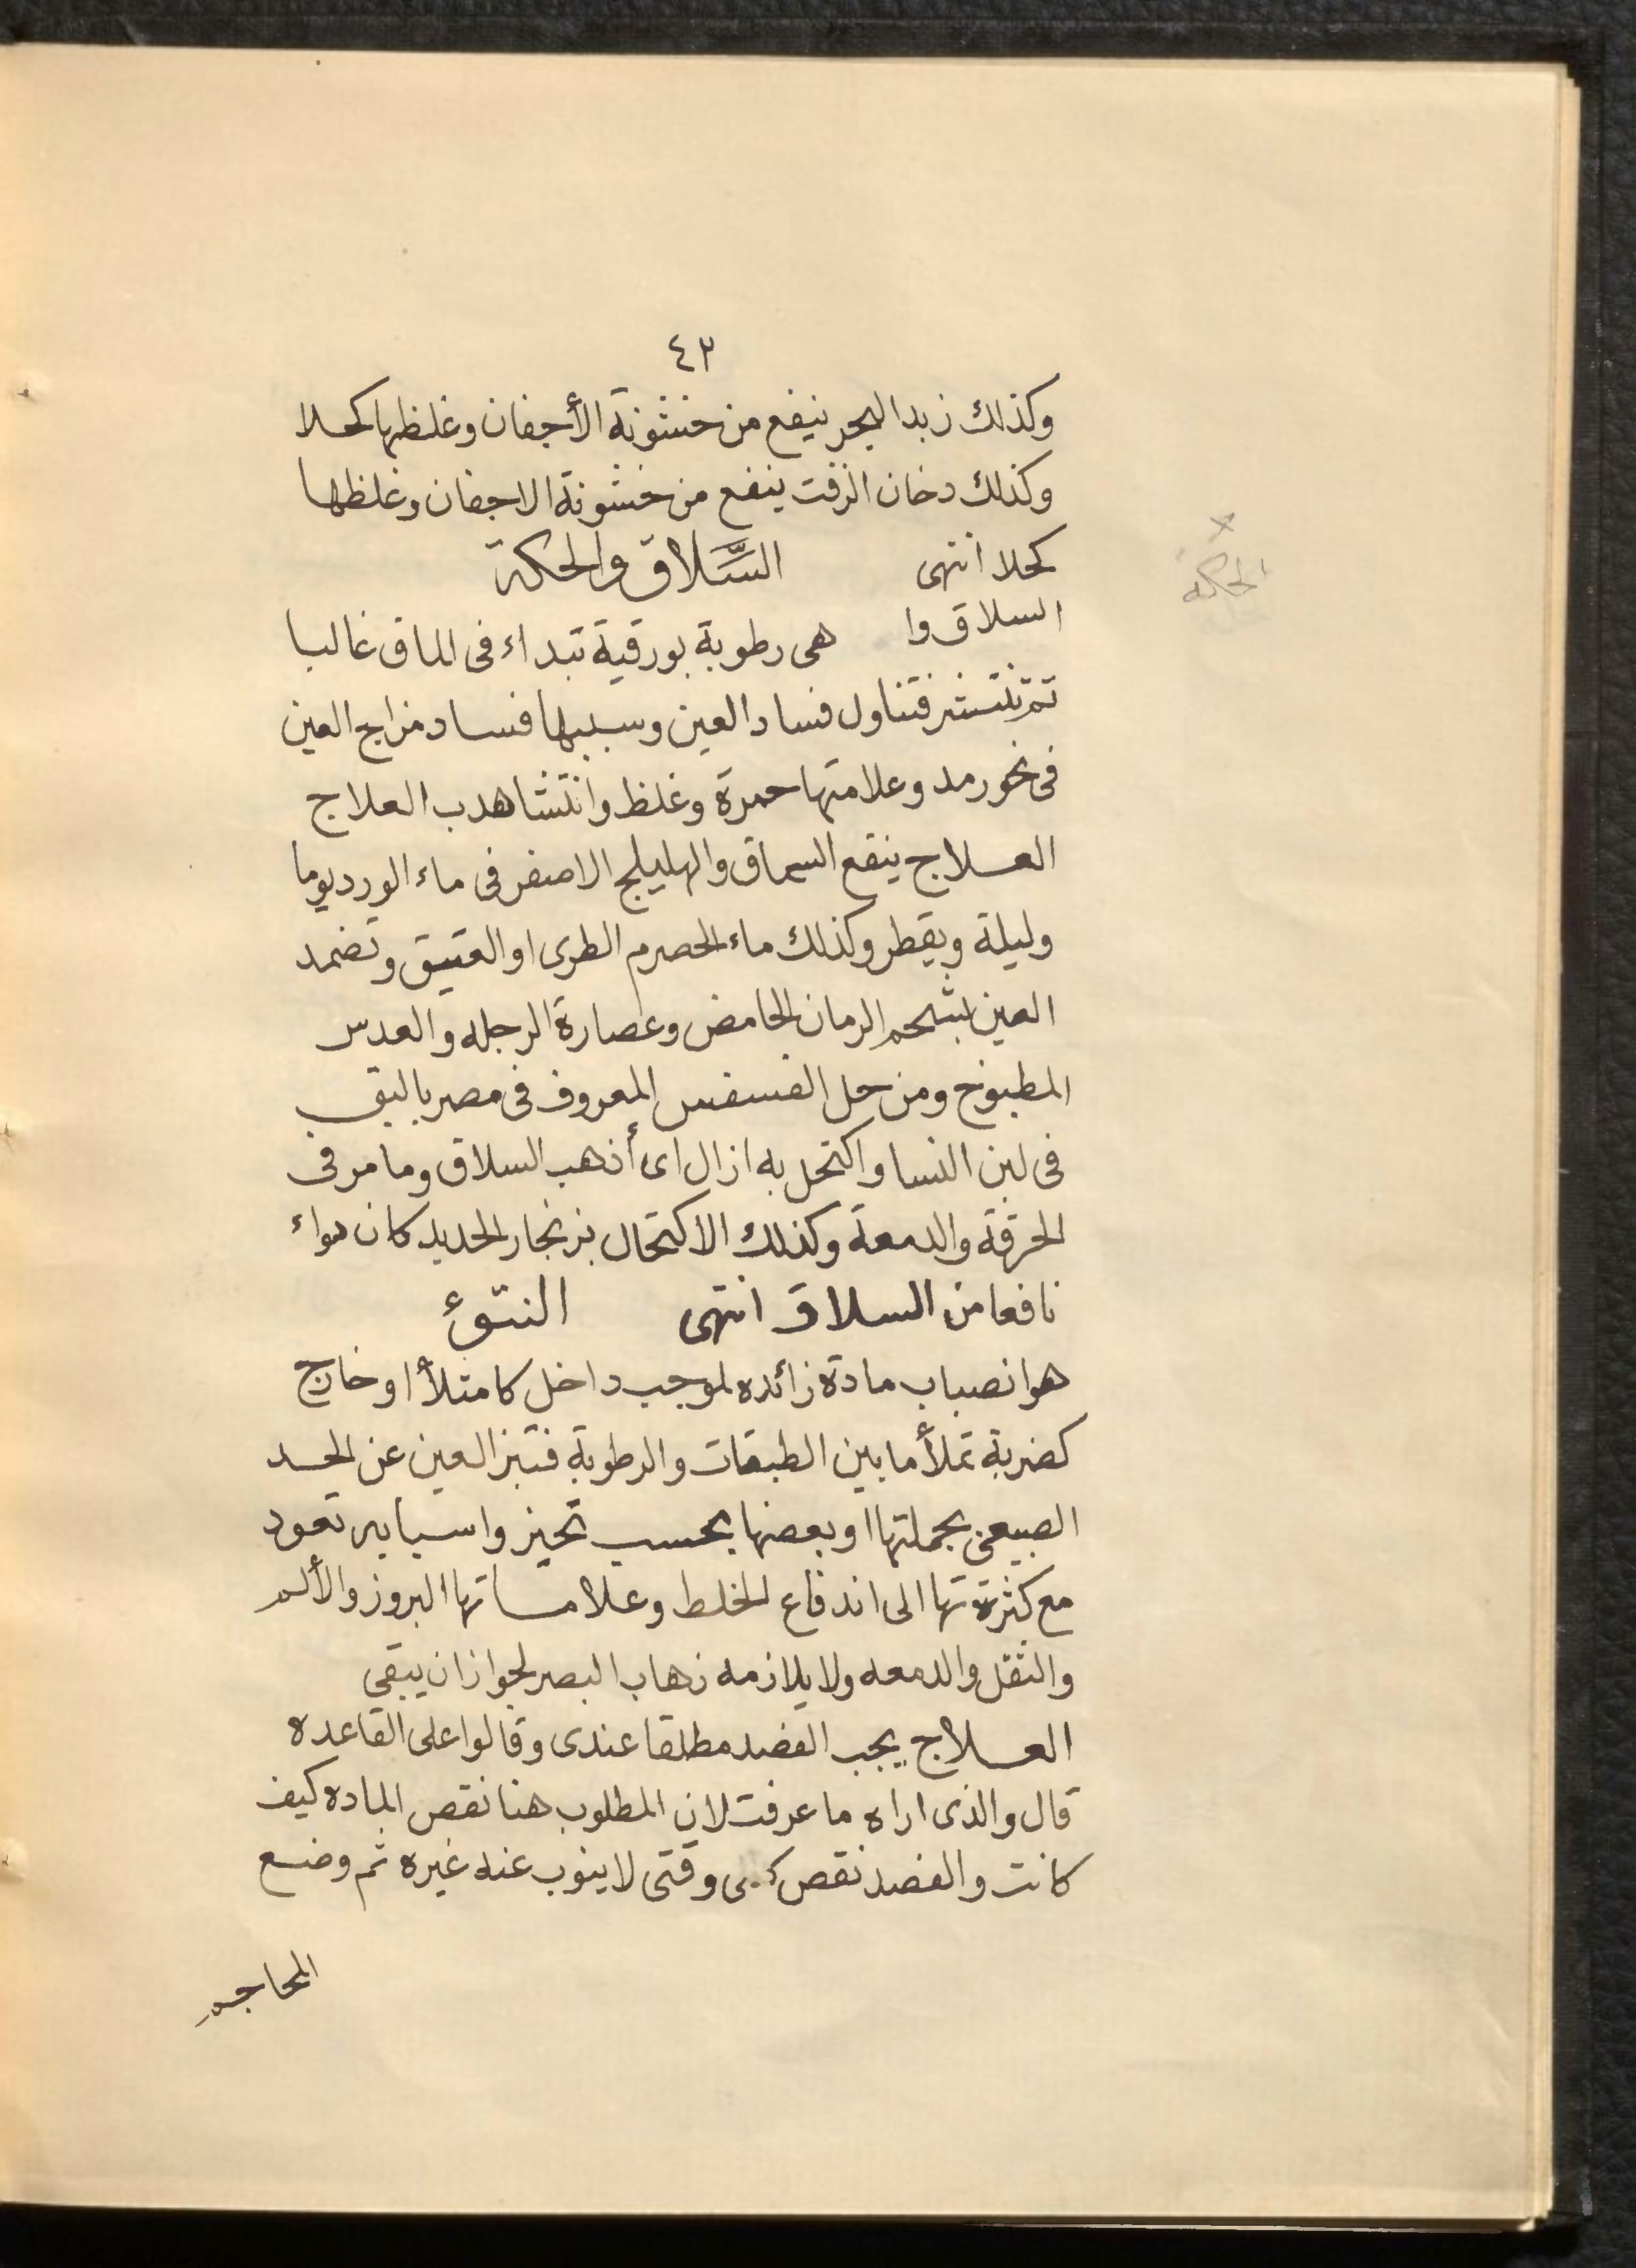 ٤٢
وكذلك زبد البحر ينفع من خشونة الأجفان وغلظها كحلا
وكذلك دخان الزفت ينفع من خشونة الاجفان وغلظها
كحلا انتهى السَّلاق والحكة
الحكه
السلاق وا هى رطوبة بورقية تبداء فى الماق غالبا
ثم تنتشر فتناول فساد العين وسببها فساد مزاج العين
فى نحو رمد وعلامتها حمرة وغلظ وانتشا هدب العلاج
العلاج ينقع السماق والهليلج الاصفر فى ماء الورد يوما
وليلة ويقطر وكذلك ماء الحصرم الطرى او العتيق وتضمد
العين بشحم الرمان الحامض وعصارة الرجله والعدس
المطبوخ ومن حل الفسفس المعروف فى مصر بالبق
فى لبن النسا واكتحل به ازال اى أذهب السلاق وما مر فى
الحرقة والدمعة وكذلك الاكتحال بزنجار الحديد كان دواء
نافعا من السلاق انتهى النتوء
هو انصباب مادة زائده لموجب داخل كامتلأ او خارج
كضربة تملأ ما بين الطبقات والرطوبة فتبز العين عن الحد
الصبيعى بجملتها او بعضها بحسب تحيز واسبابه تعود
مع كثرة تها الى اندفاع الخلط وعلاماتها البروز والألم
والثقل والدمعه ولا يلازمه زهاب البصر لجواز ان يبقى
العلاج يجب الفصد مطلقا عندى وقالوا على القاعده
قال والذى اراه ما عرفت لان المطلوب هنا نقص الماده كيف
كانت والفصد نقص وقتى لا ينوب عنه غيره ثم وضع
المحاجم